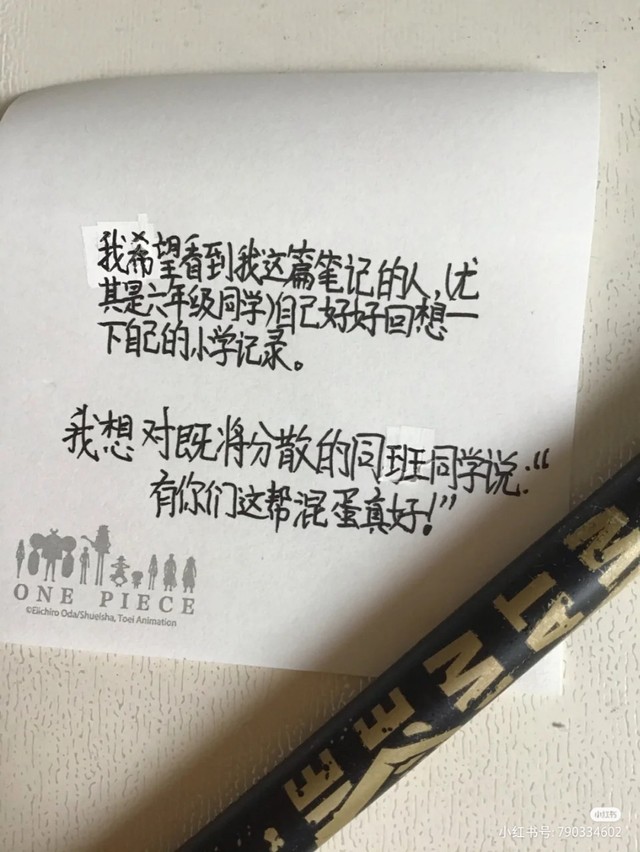 我希望看到我这篇笔记的人,(尤
其是六年级同学)自己好好回想一
下自己的小学记录。
我想对既将分散的同班同学说:“
有你们这帮混蛋真好!”
ONE PIECE
©Eiichiro Oda/Shueisha, Toei Animation
小红书
小红书号: 790334602